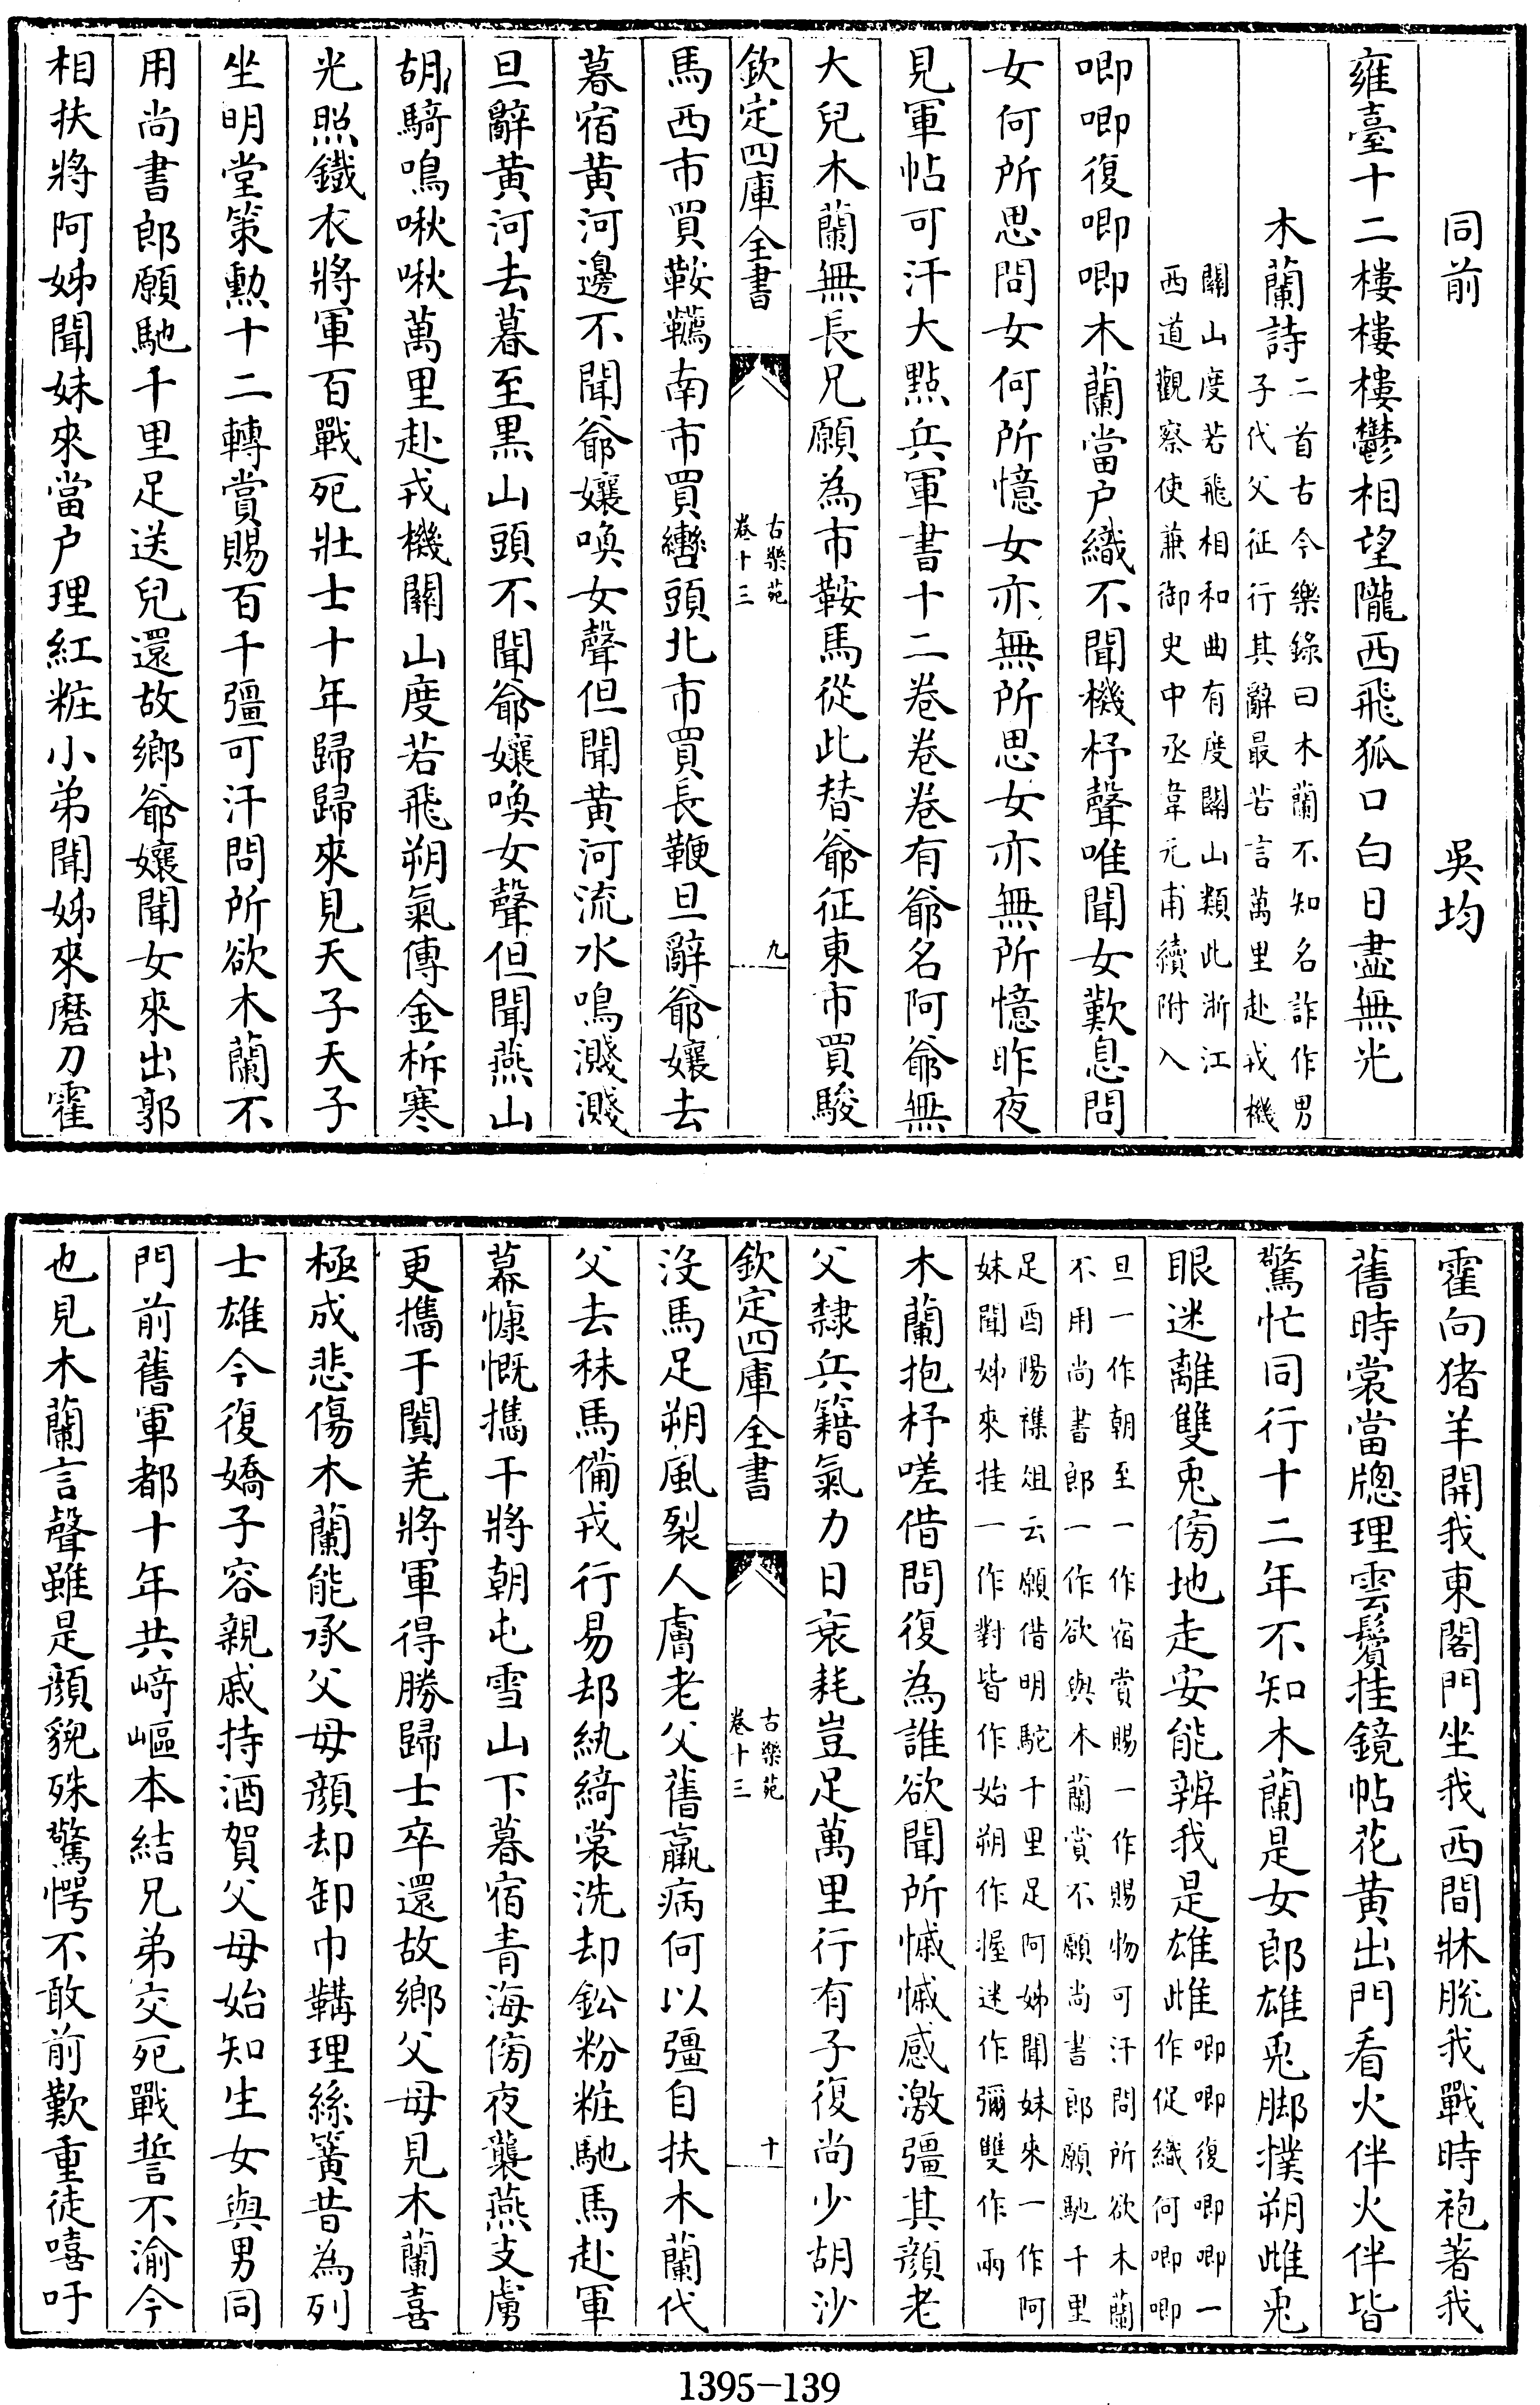 同前　吳均
雍臺十二樓樓樓鬱相望隴西飛狐口白日盡無光
木蘭詩二首古今樂錄曰木蘭不知名詐作男
子代父征行其辭最苦言萬里赴戎機
關山度若飛相和曲有度關山類此浙江
西道觀察使兼御史中丞韋元甫續附入
唧唧復唧唧木蘭當户織不聞機杼聲唯聞女歎息問
女何所思問女何所憶女亦無所思女亦無所憶昨夜
見軍帖可汗大點兵軍書十二卷卷卷有爺名阿爺無
大兒木蘭無長兄願為市鞍馬從此替爺征東市買駿
欽定四庫全書
古樂苑
卷十三
九
馬西市買鞍韉南市買轡頭北市買長鞭旦辭爺孃去
暮宿黄河邊不聞爺孃喚女聲但聞黄河流水鳴濺濺
旦辭黄河去暮至黒山頭不聞爺孃喚女聲但聞燕山
胡騎鳴啾啾萬里赴戎機關山度若飛朔氣傳金柝寒
光照鐵衣將軍百戰死壯士十年歸歸來見天子天子
坐明堂策勲十二轉賞賜百千彊可汗問所欲木蘭不
用尚書郎願馳千里足送兒還故鄉爺孃聞女來出郭
相扶將阿姊聞妹來當户理紅粧小弟聞姊來磨刀霍
霍向猪羊開我東閣門坐我西間牀脱我戰時袍著我
舊時裳當牕理雲鬢挂鏡帖花黄出門看火伴火伴皆
驚忙同行十二年不知木蘭是女郎雄兎脚撲朔雌兎
眼迷離雙兎傍地走安能辨我是雄雌唧唧復唧唧一
作促織何唧唧
旦一作朝至一作宿賞賜一作賜物可汗問所欲木蘭
不用尚書郎一作欲與木蘭賞不願尚書郎願馳千里
足酉陽襍俎云願借明駝千里足阿姊聞妹來一作阿
妹聞姊來挂一作對皆作始朔作握迷作彌雙作兩
木蘭抱杼嗟借問復為誰欲聞所慽慽感激彊其顔老
父隸兵籍氣力日衰耗豈足萬里行有子復尚少胡沙
欽定四庫全書
古樂苑
卷十三
十
沒馬足朔風裂人膚老父舊羸病何以彊自扶木蘭代
父去秣馬備戎行易却紈綺裳洗却鉛粉粧馳馬赴軍
幕慷慨攜干將朝屯雪山下暮宿青海傍夜襲燕支虜
更攜于闐羌將軍得勝歸士卒還故鄉父母見木蘭喜
極成悲傷木蘭能承父母顔却卸巾鞲理絲簧昔為列
士雄今復嬌子容親戚持酒賀父母始知生女與男同
門前舊軍都十年共崎嶇本結兄弟交死戰誓不渝今
也見木蘭言聲雖是顔貌殊驚愕不敢前歎重徒嘻吁
1395-139